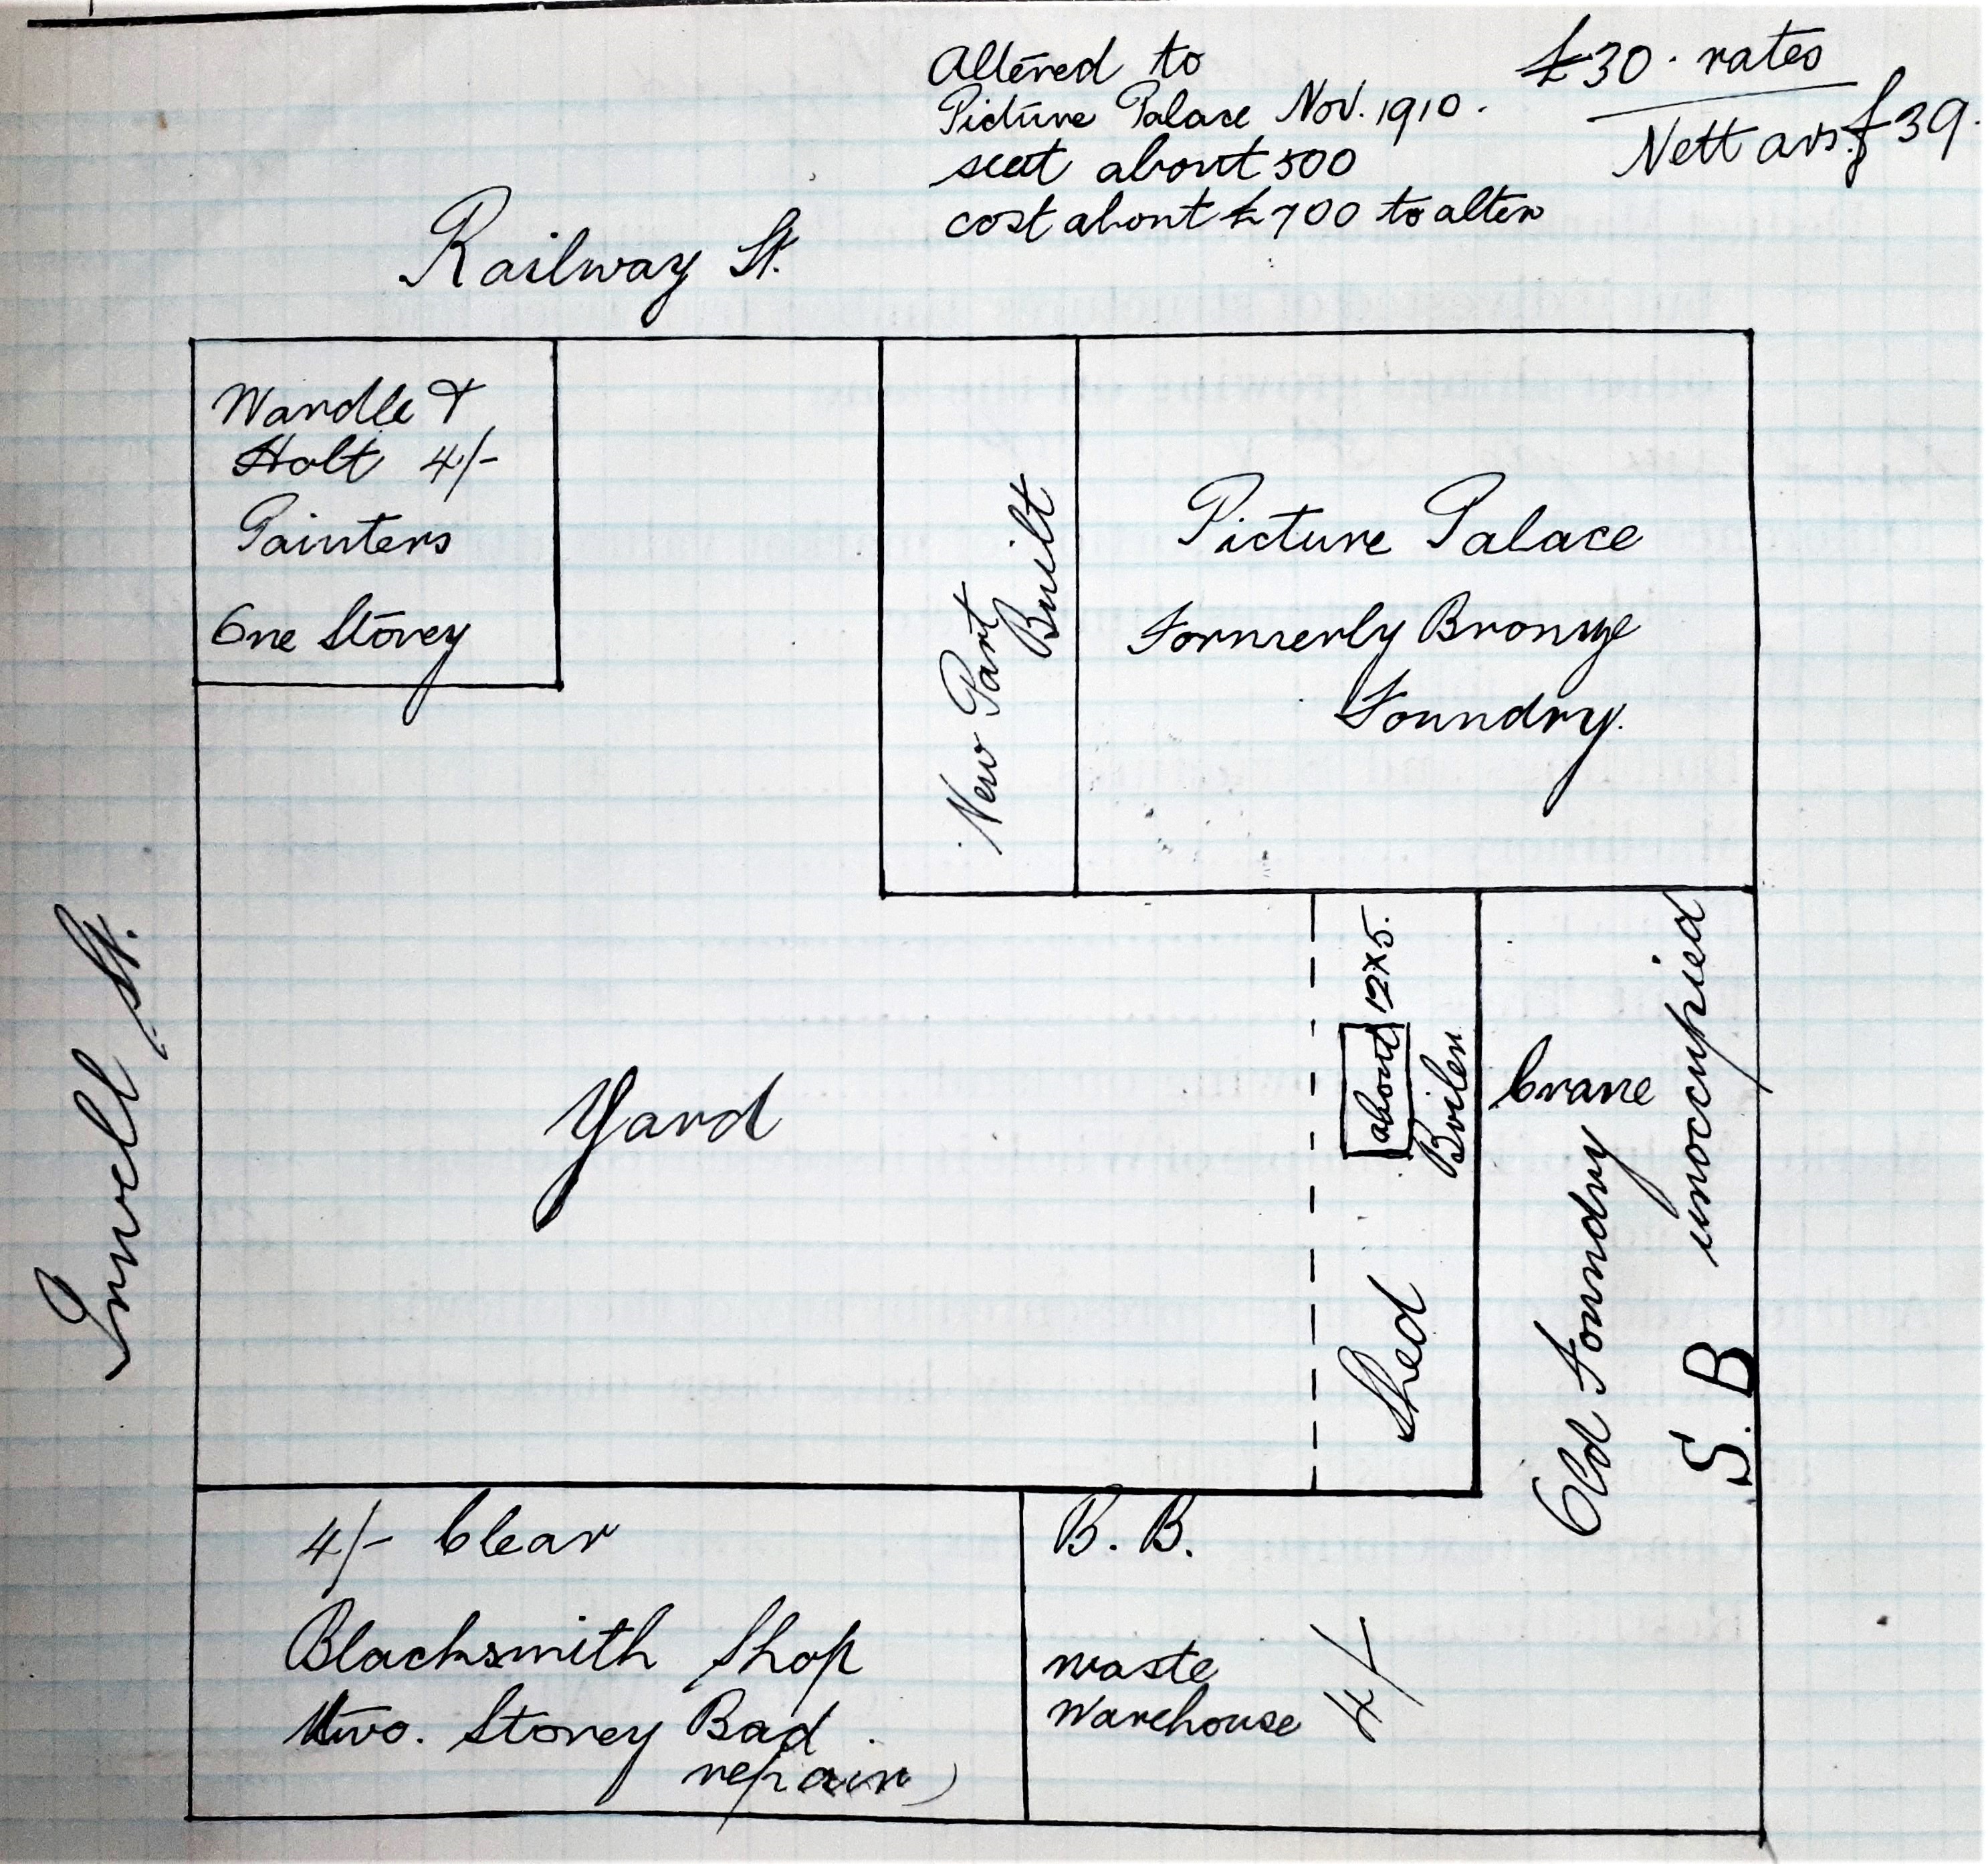 Altered to
Picture Palace Nov. 1910.
seat about 500
cost about £700 to alter
£30. rates
Nett £39.
Railway St.
Wardle &
Holt 4/-
Painters
One Storey
New Part
Built
Picture Palace
Formerly Bronze
Foundry.
Irwell St.
Yard
about 12x5.
Boiler
Shed
Crane
Old Foundry
unoccupied
S. B
4/- Clear
Blacksmith Shop
two. Storey Bad
repair)
B. B.
waste
Warehouse 4/-